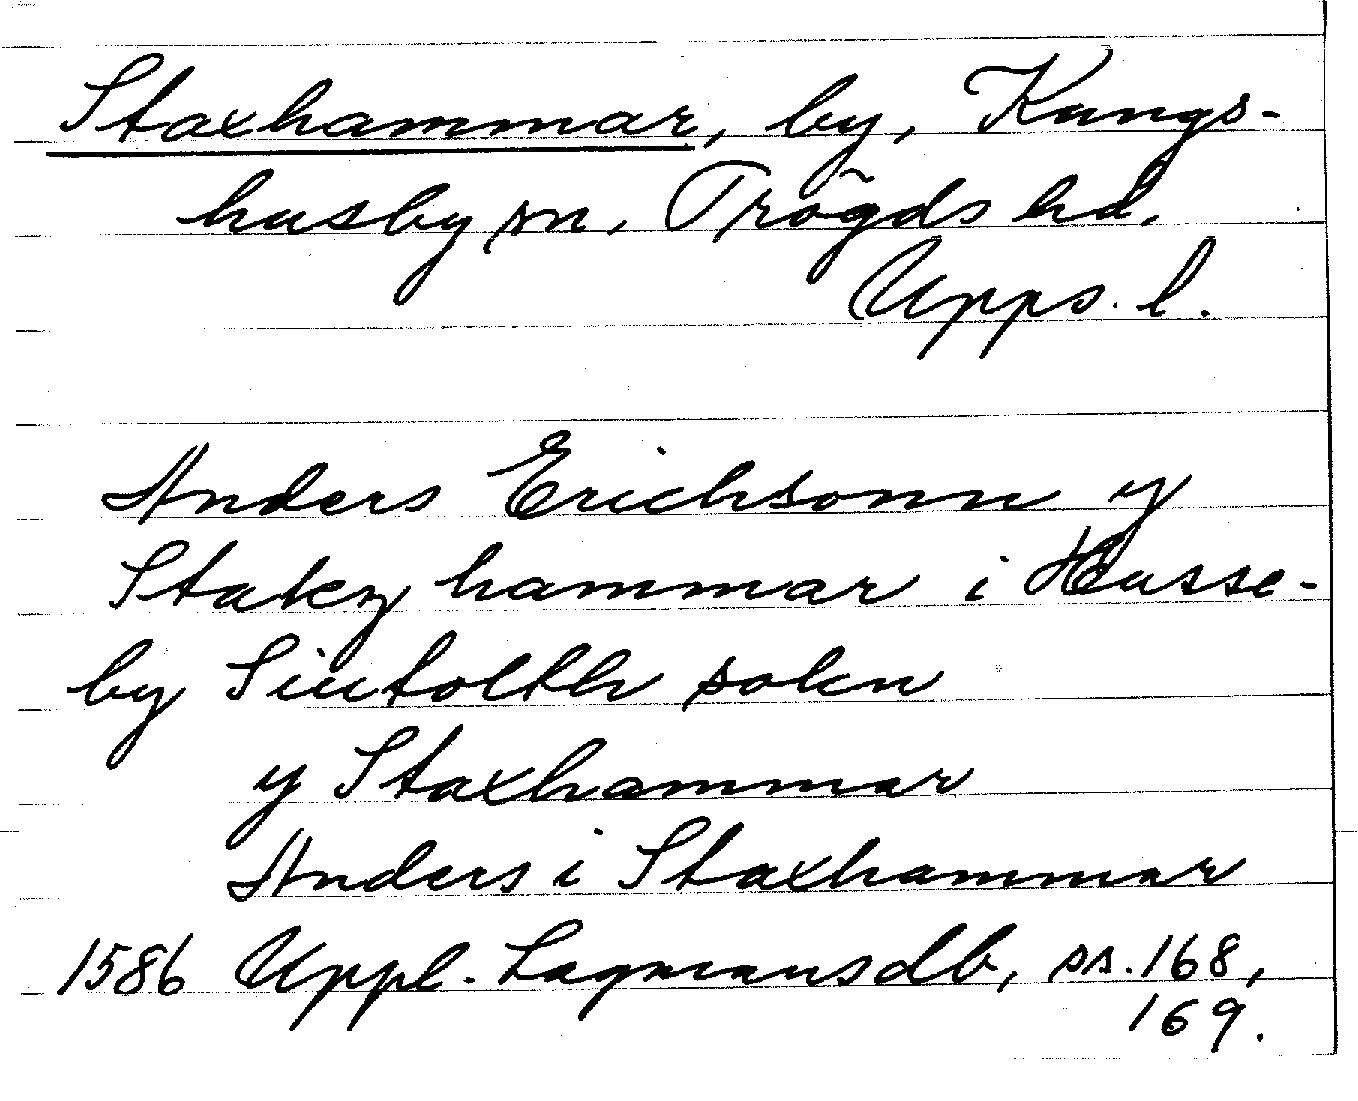 Staxhammar, by, Kungs-
husby sn, Trögds hd.
Upps. l.
Anders Erichsonn y
hammar i Husse-
by Siutolth sokn
y Staxhammar
Anders i Staxhammar
1586 Uppl. Lagmansdb, ss. 168,
169.